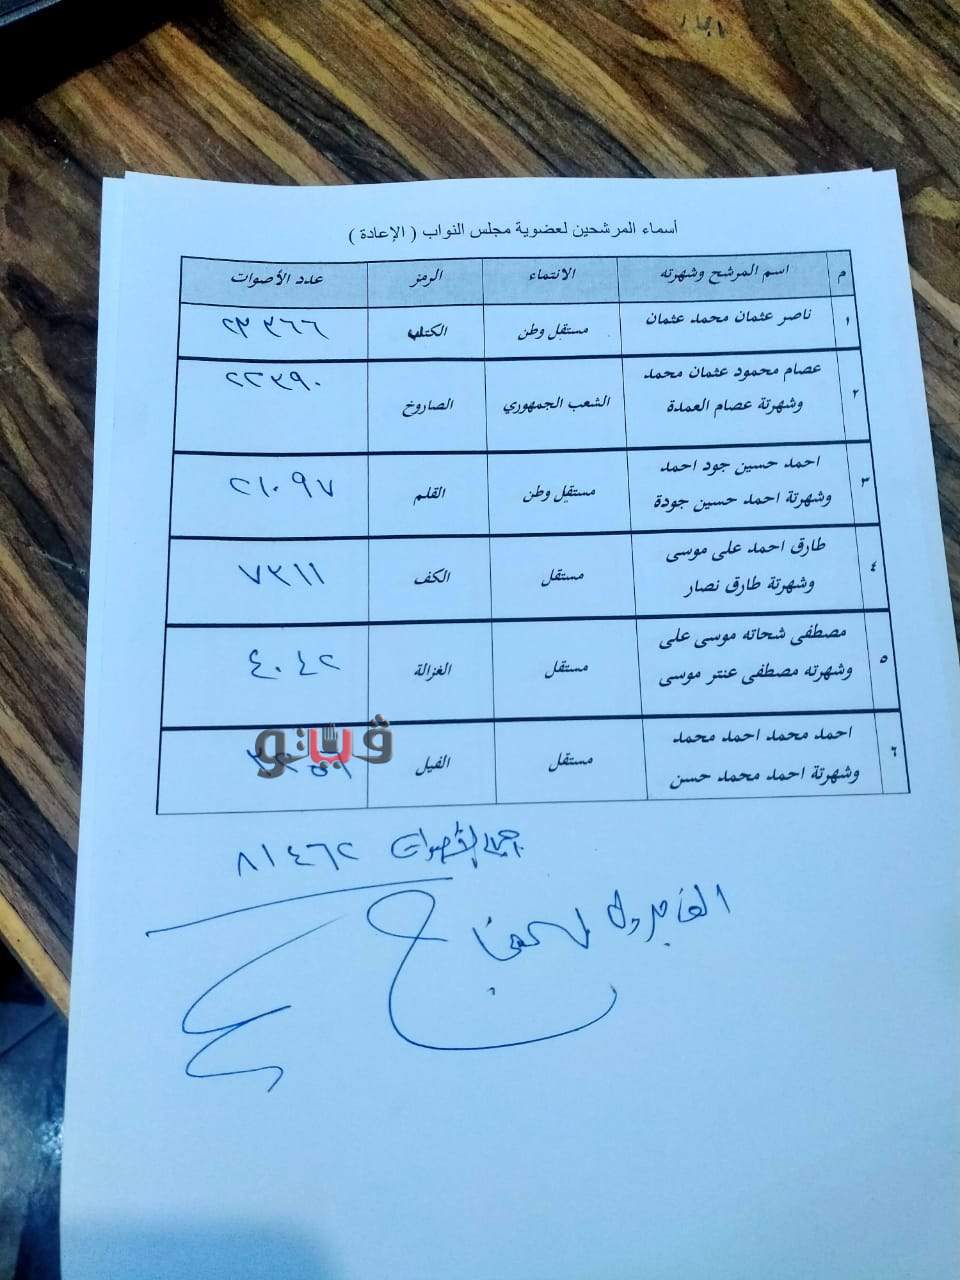 أسماء المرشحين لعضوية مجلس النواب ( الإعادة )
م اسم المرشح وشهرته الانتماء الرمز عدد الأصوات
١ ناصر عثمان محمد عثمان مستقبل وطن الكتاب ٢٣٣٦٦
٢ عصام محمود عثمان محمد
وشهرتة عصام العمدة الشعب الجمهوري الصاروخ ٢٢٣٩٠
٣ احمد حسين جود احمد
وشهرتة احمد حسين جودة مستقبل وطن القلم ٢١٠٩٧
٤ طارق احمد على موسى
وشهرتة طارق نصار مستقل الكف ٧٣١١
٥ مصطفى شحاته موسى على
وشهرته مصطفى عنتر موسى مستقل الغزالة ٤٠٤٢
٦ احمد محمد احمد محمد
وشهرتة احمد محمد حسن مستقل الفيل
ڤيتو
اجمالى الأصوات ٨١٤٦٢